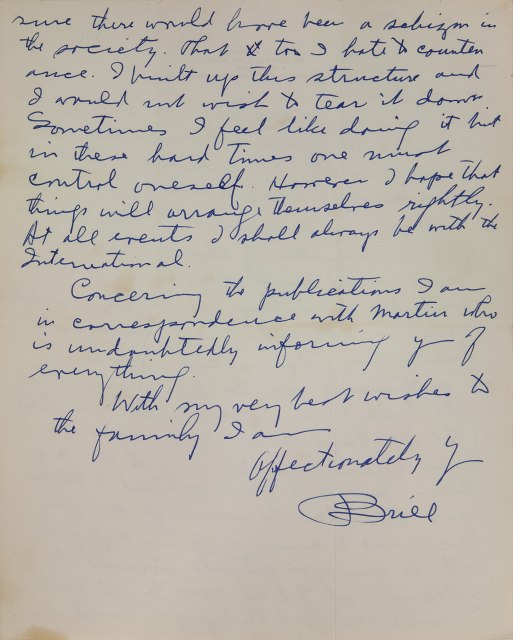 sure there would have been a schizm in
the society. That too I hate to counten
ance. I built up this structure and
I would not wish to tear it down.
Sometimes I feel like doing it but
in these hard times one must
control oneself. However I hope that
things will arrange themselves rightly.
At all events I shall always be with the
International.
Concerning the publications I am
in correspondence with Martin who
is undoubtedly informing you of
everything.
With my very best wishes to
the family I am
Affectionately y
Brill